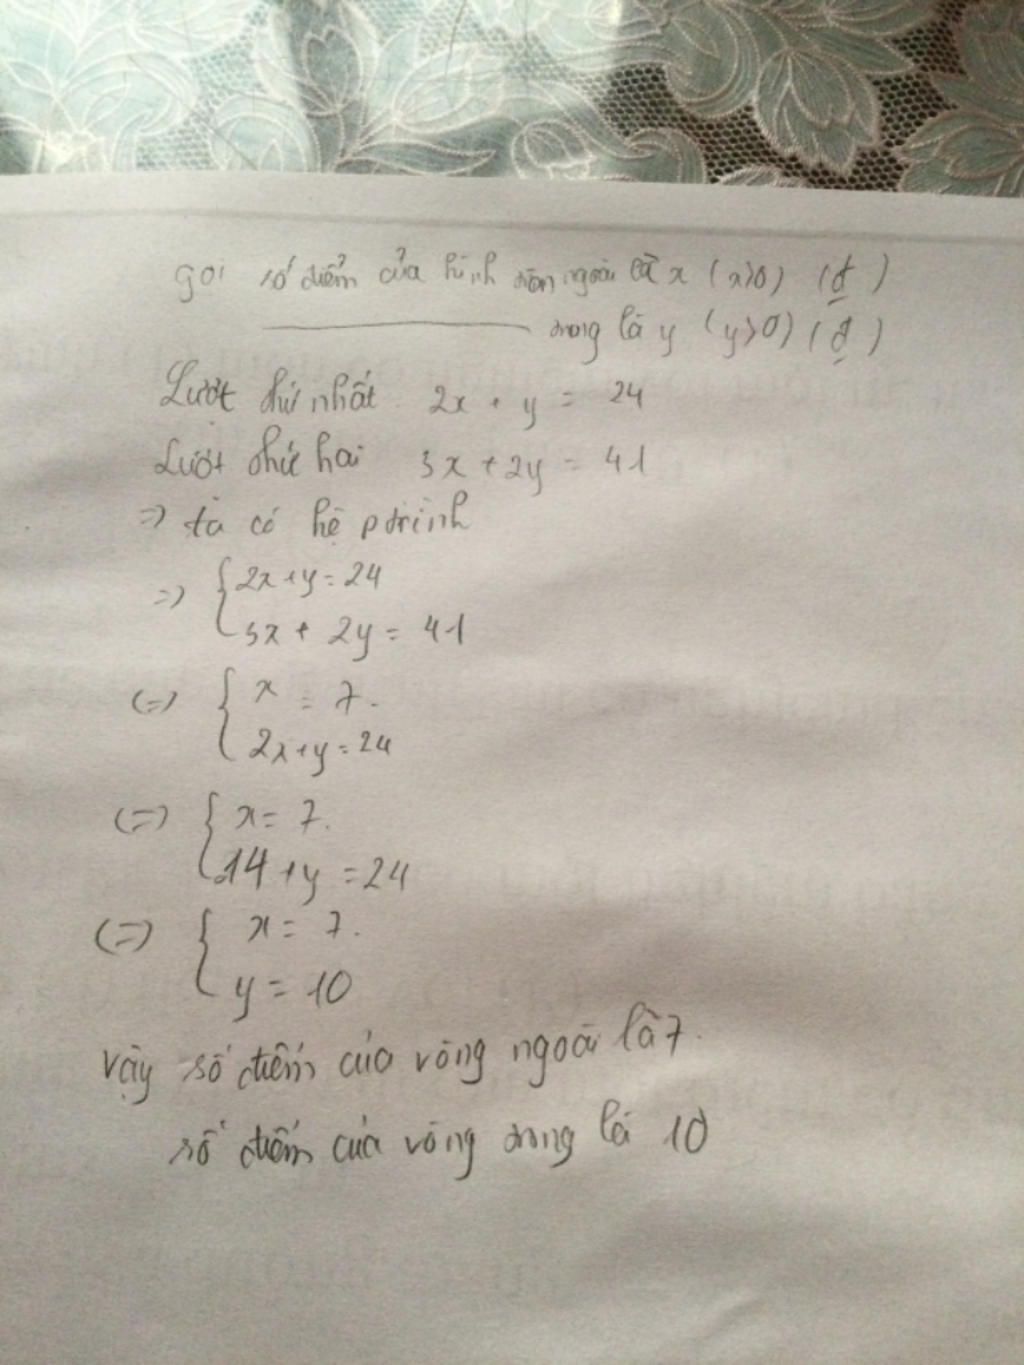 gọi số điểm của hình tròn ngoài là x (x>0) (đ)
trong là y (y>0) (đ)
Lượt thứ nhất 2x + y = 24
Lượt thứ hai 3x + 2y = 41
=> ta có hệ ptrình
=> { 2x+y = 24
3x + 2y = 41
(=) { x = 7.
2x+y = 24
(=) { x = 7.
14 + y = 24
(=) { x = 7.
y = 10
Vậy số điểm của vòng ngoài là 7.
số điểm của vòng trong là 10